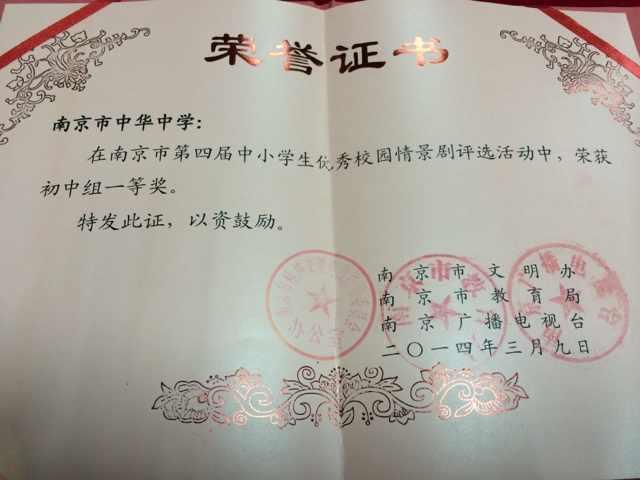 荣誉证书
南京市中华中学：
在南京市第四届中小学生优秀校园情景剧评选活动中，荣获
初中组一等奖。
特发此证，以资鼓励。
南京市文明办
南京市教育局
南京广播电视台
二〇一四年三月九日
办公室